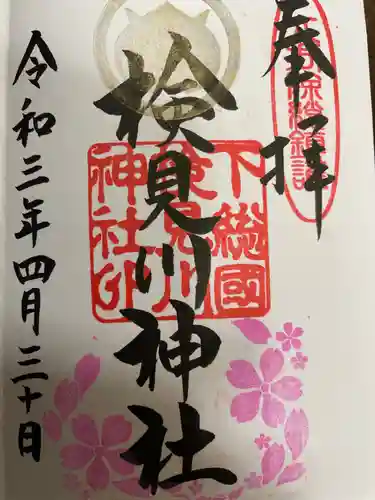 奉拝
検見川神社
下総國
検見川
神社印
令和三年四月三十日